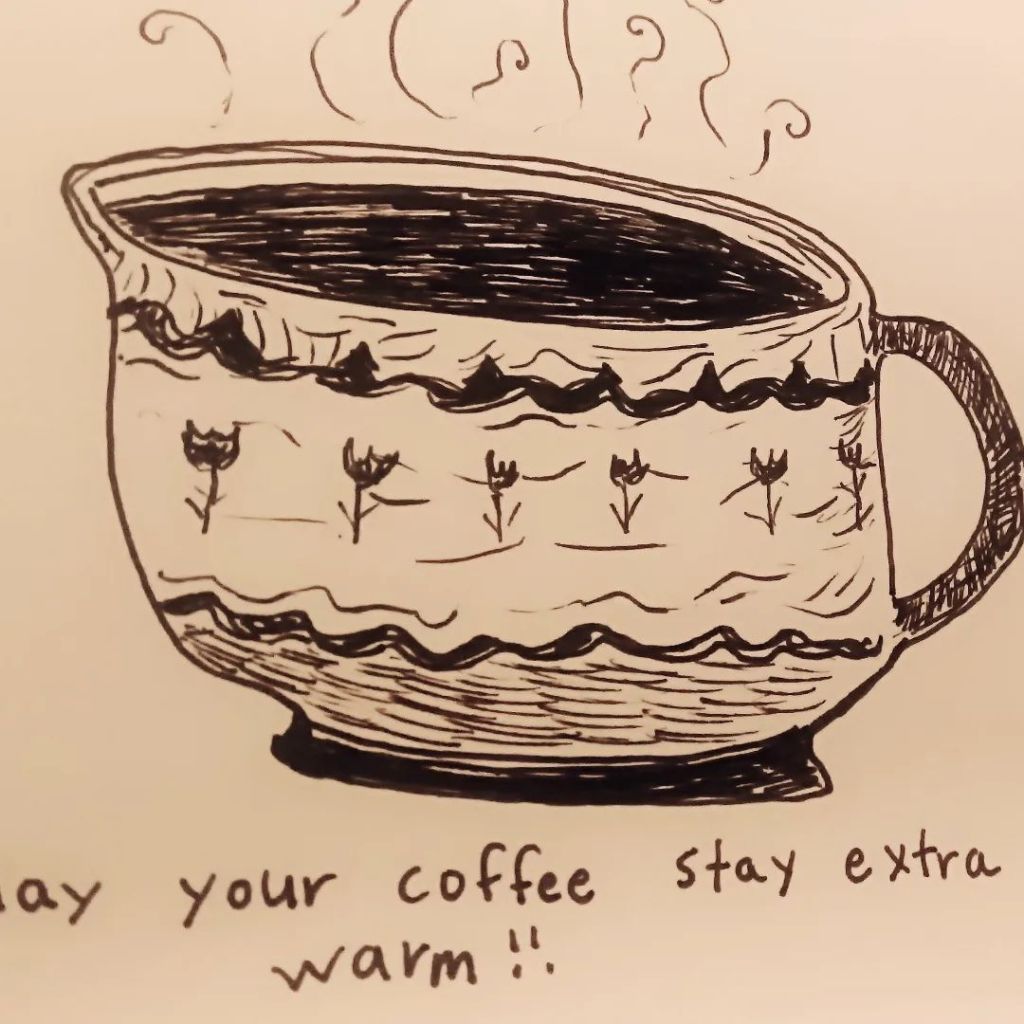 ay your coffee stay extra
warm!!